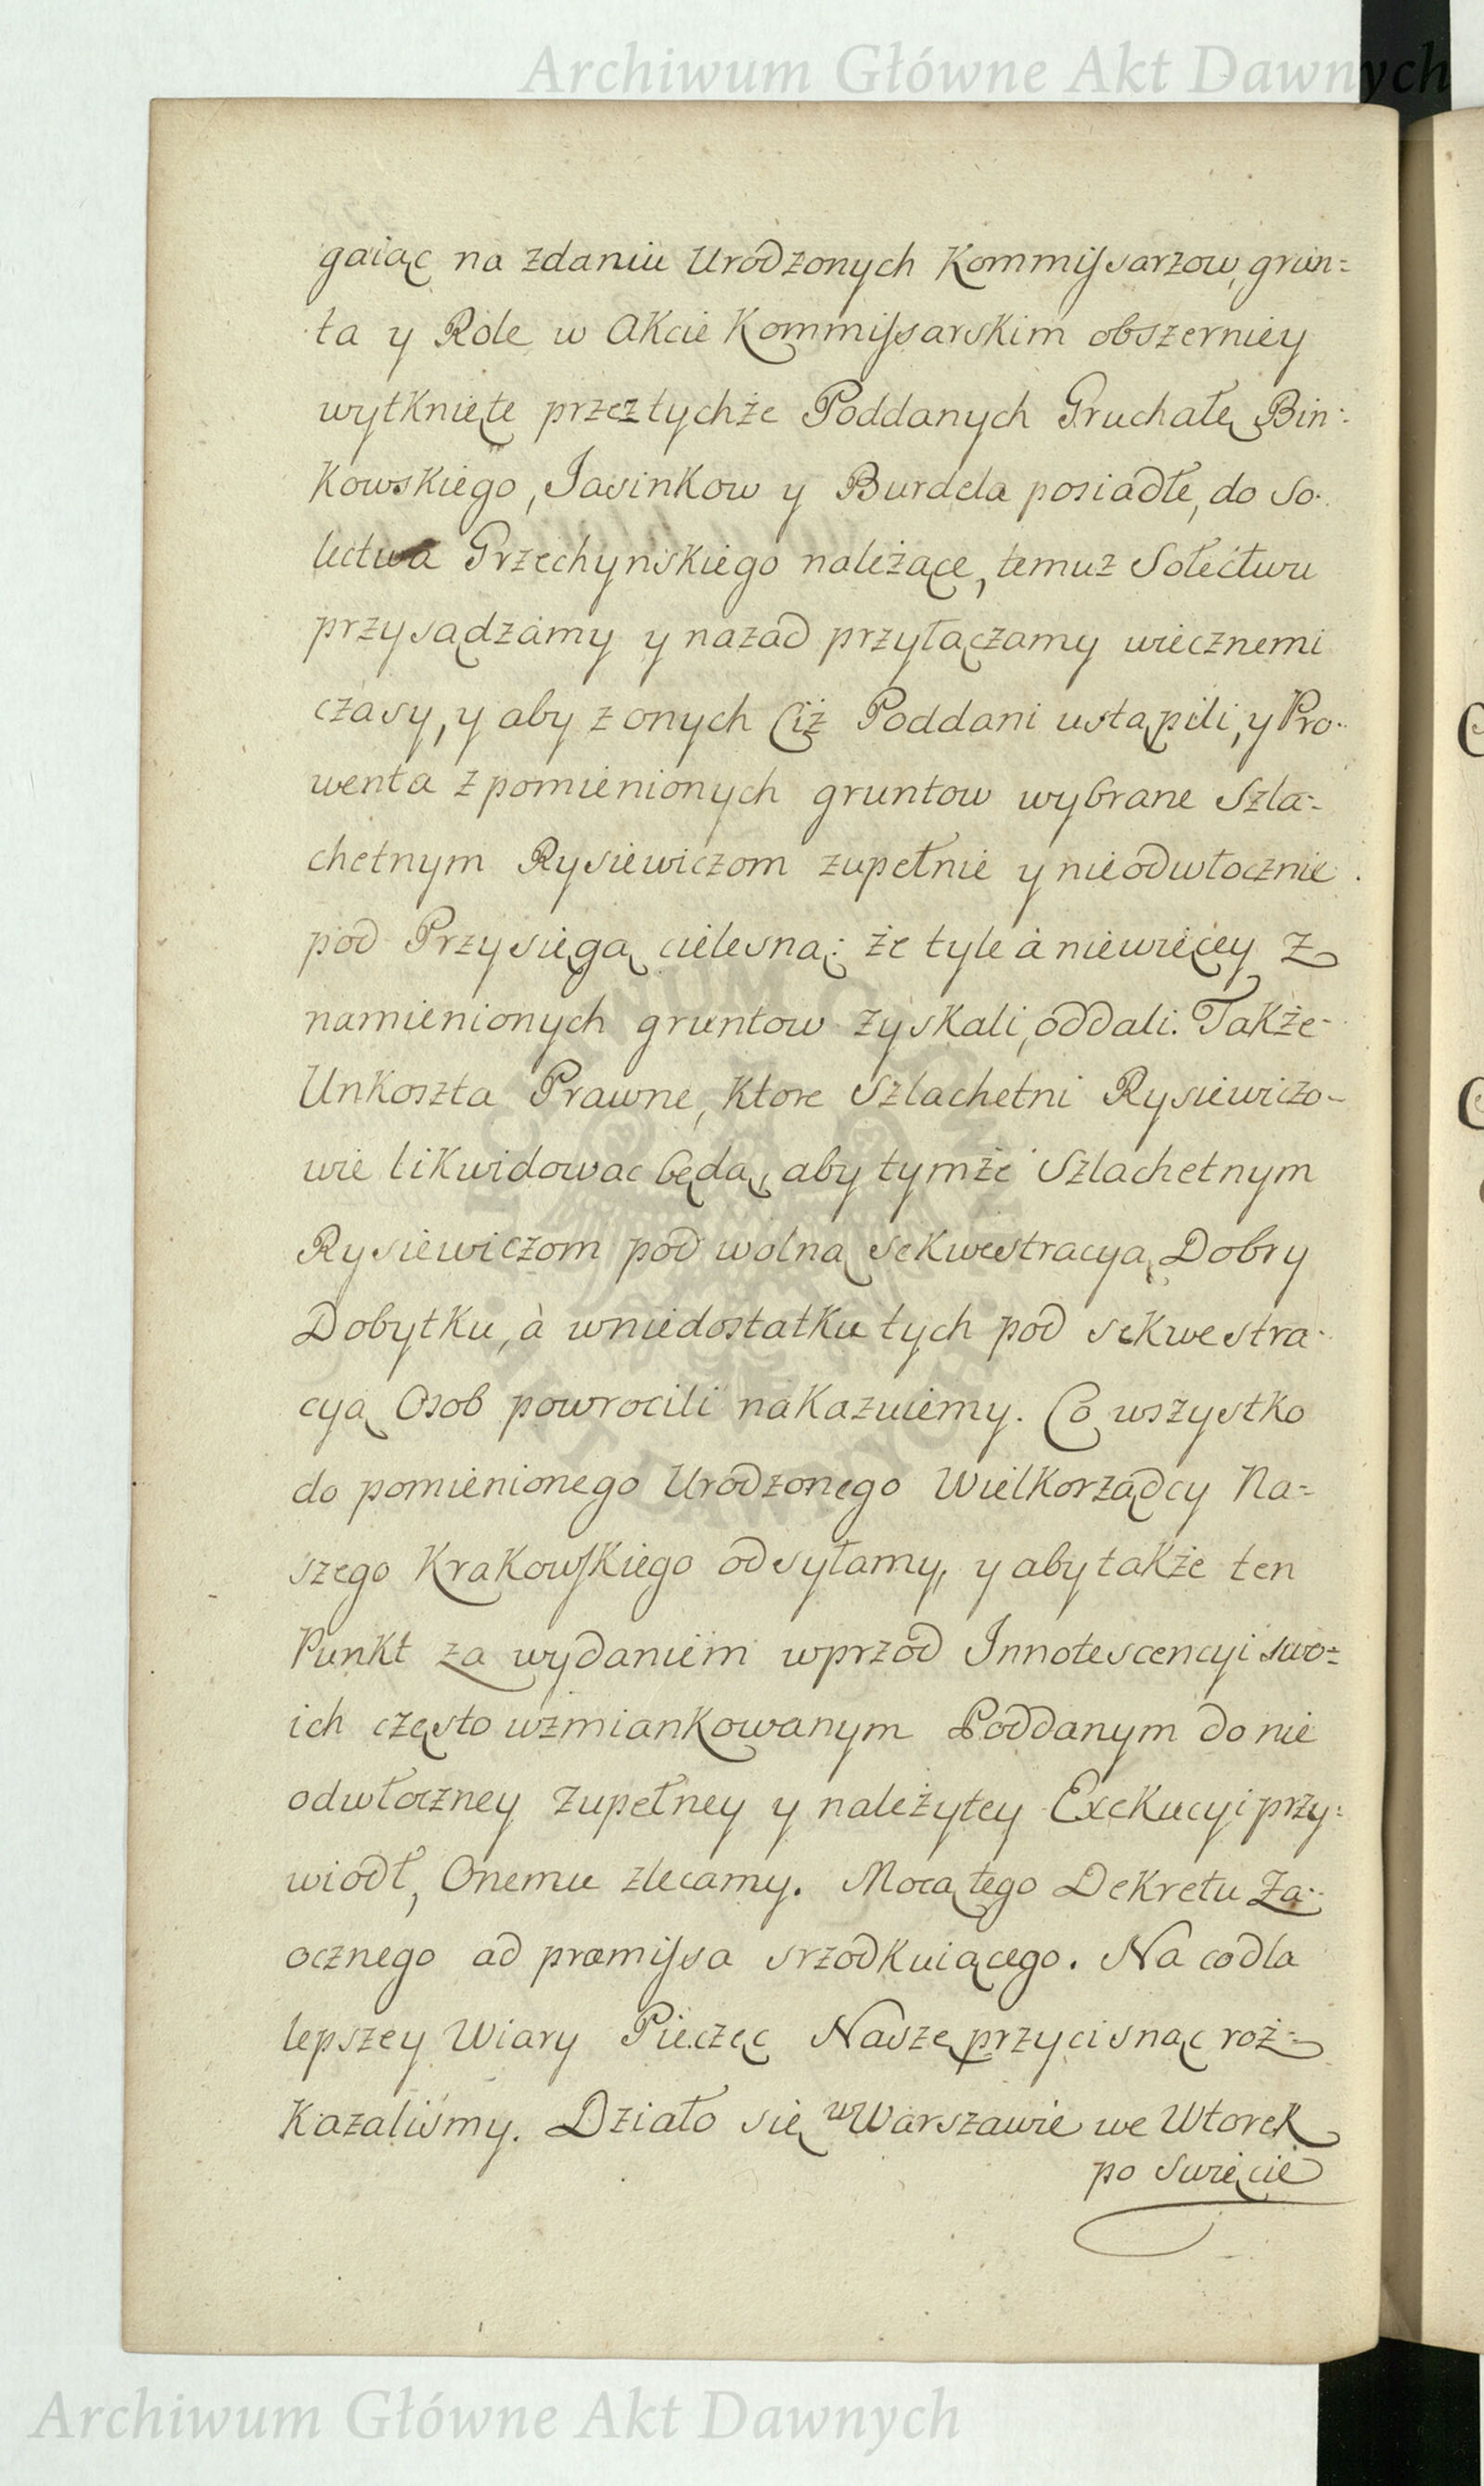 Archiwum Główne Akt Dawnych
gaiąc na zdaniu Urodzonych Kommissarzow, grun=
ta y Role w Akcie Kommissarskim obszerniey
wytknięte przez tychże Poddanych Gruchałę Bin=
kowskiego, Jasinkow y Burdela posiadłe, do So=
lectwa Grzechynskiego należące, temuż Sołectwu
przysądzamy y nazad przyłączamy wiecznemi
czasy, y aby z onych Ciż Poddani ustąpili, y Pro=
wenta z pomienionych gruntow wybrane Szla=
chetnym Rysiewiczom zupełnie y nieodwłocznie
pod Przysięgą cielesną: że tyle à niewięcey z
namienionych gruntow zyskali, oddali. Także
Unkoszta Prawne, ktore Szlachetni Rysiewiczo=
wie likwidowac będą, aby tymże Szlachetnym
Rysiewiczom pod wolną sekwestracyą Dobry
Dobytku, à wniedostatku tych pod sekwestra=
cyą Osob powrocili nakazuiemy. Co wszystko
do pomienionego Urodzonego Wielkorządcy Na=
szego Krakowskiego odsyłamy, y aby także ten
Punkt za wydaniem wprzod Innotescencyi swo=
ich często wzmiankowanym Poddanym do nie
odwłoczney zupełney y należytey Exekucyi przy=
wiodł, Onemu zlecamy. Mocą tego Dekretu Za=
ocznego ad præmissa srzodkuiącego. Na co dla
lepszey Wiary Pieczęc Naszę przycisnąc roz=
kazaliśmy. Działo się w Warszawie we Wtorek
po Swięcie
Archiwum Główne Akt Dawnych